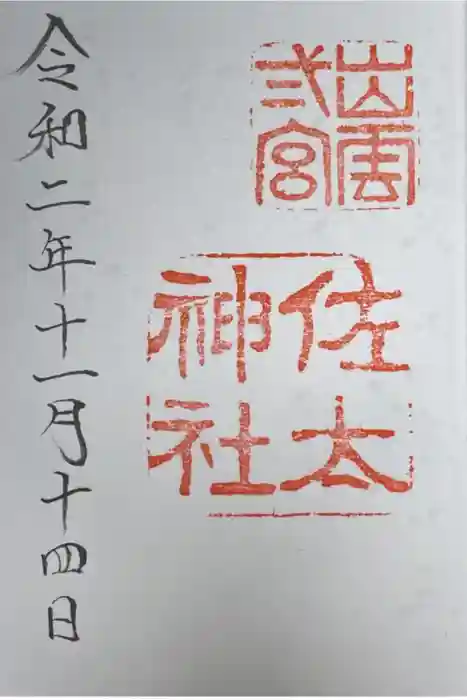 出雲
弐宮
佐太
神社
令和二年十一月十四日